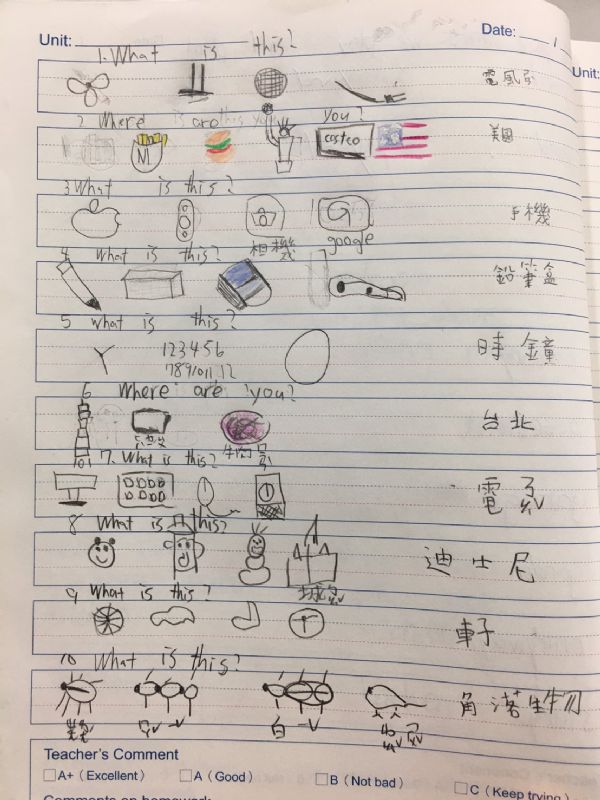 Unit: Date: /
1. What is this?
電風
2 Where are you?
M costco 美國
3 What is this?
G 手機
相機 google
4 What is this?
鉛筆盒
5 What is this?
123456
789101112 時鐘
6 Where are you?
台北
101 牛肉
7. What is this?
電
8 What is this?
迪士尼
城
9 What is this?
車子
10 What is this?
角落生物
白
Teacher's Comment
A+ (Excellent) A (Good) B (Not bad) C (Keep trying)
Unit: